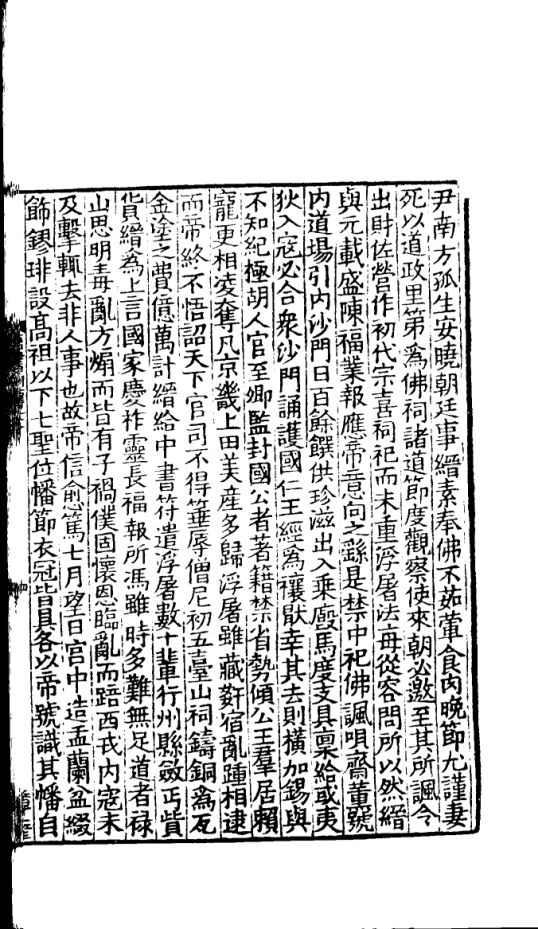 尹南方孤生安曉朝廷事縉素奉佛不茹葷食肉晚節尤謹妻
死以道政里第為佛祠諸道節度觀察使來朝必邀至其所諷令
出財佐營作初代宗喜祠祀而未重浮屠法每從容問所以然縉
與元載盛陳福業報應帝意向之繇是禁中祀佛諷唄齋薰號
内道場引内沙門日百餘饌供珍滋出入乘廐馬度支具稟給或夷
狄入寇必合衆沙門誦護國仁王經為禳猒幸其去則橫加錫與
不知紀極胡人官至卿監封國公者著籍禁省勢傾公王羣居賴
寵更相凌奪凡京畿上田美産多歸浮屠雖藏姧宿亂踵相逮
而帝終不悟詔天下官司不得箠辱僧尼初五臺山祠鑄銅為瓦
金塗之費億萬計縉給中書符遣浮屠數十輩行州縣斂丐貲
貨縉為上言國家慶祚靈長福報所馮雖時多難無足道者禄
山思明毒亂方煽而皆有子禍僕固懷恩臨亂而踣西戎内寇未
及擊輒去非人事也故帝信愈篤七月望日宫中造盂蘭盆綴
飾鏐琲設高祖以下七聖位幡節衣冠皆具各以帝號識其幡自